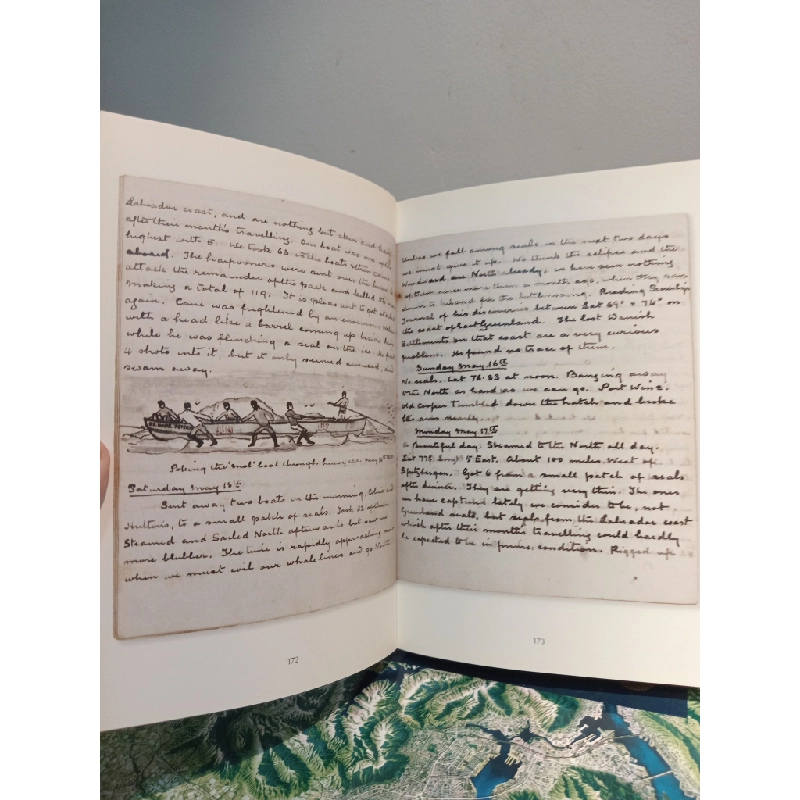 Labrador coast, and are nothing but skin and
after their months travelling. Our boat was
highest with 8. We took 63 in the boats
ahead. The harpooners were sent over the
attack the remainder of the pack and killed
making a total of 119. It is
again. Cane was frightened by an enormous
with a head like a barrel coming up
while he was flinching a seal on the ice. He
4 shots into it but it only
swam away.
Poking the "Small" boat through heavy ice. May
Saturday May 15th
Sent away two boats in the morning,
to a small patch of seals.
Steamed and Sailed North afterwards but saw no
more blubber. The time is rapidly approaching now
when we must coil our whale lines and go
Unless we fall among seals in the next two days
we must give it up. We think the eclipse and the
Windward are North already, we have seen nothing
of them since more than a month ago, when they
Reading Scoresby's
Journal of his discoveries between Lat 69° & 74° on
the coast of East Greenland. The lost Danish
Settlements on that coast are a very curious
problem. He found no trace of them.
Sunday May 16th
No seals. Lat 76.33 at noon. Banging away
to the North as hard as we can go. Port Wine.
Old Cooper tumbled down the hatch and broke
Monday May 17th
A Beautiful day. Steamed to the North all day.
Lat 5 East. About 100 miles West of
Spitzbergen. Got 6 from a small patch of seals
after dinner. They are getting very thin. The ones
we have captured lately we consider to be, not
Greenland seals, but seals from the Labrador coast
which after their months travelling could hardly
be expected to be in prime condition. Rigged up
172
173